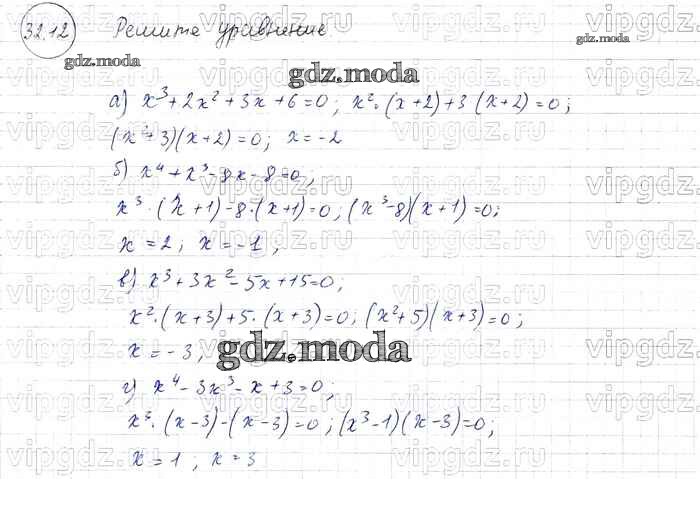 32.12 Решите уравнение
gdz.moda
gdz.moda
gdz.moda
а) x³ + 2x² + 3x + 6 = 0; x²·(x+2)+3(x+2)=0;
(x²+3)(x+2)=0; x=-2
б) x⁴ + x³ - 8x - 8 = 0;
x³·(x+1)-8·(x+1)=0; (x³-8)(x+1)=0;
x = 2; x = -1;
в) x³ + 3x² - 5x + 15 = 0;
x²·(x+3)+5·(x+3)=0; (x²+5)(x+3)=0;
x = -3;
gdz.moda
г) x⁴ - 3x³ - x + 3 = 0;
x³·(x-3)-(x-3)=0; (x³-1)(x-3)=0;
x = 1; x = 3
vipgdz.ru